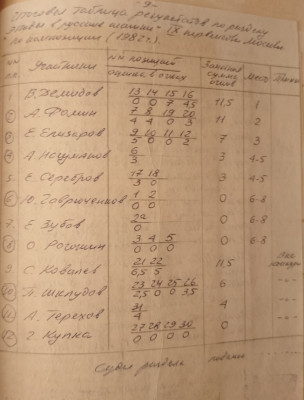 - 9 -
Итоговая таблица результатов по разделу
"Этюды в русские шашки" IX первенства Москвы
по композиции (1982 г.).
Участники №№ позиций оценка в очках сумма очков Место
1 В. Демидов 13 14 15 16 11,5 1
0 0 7 4,5
2 А. Фомин 7 8 19 20 11 2
4 4 0 3
3 Е. Елизаров 9 10 11 12 7 3
5 0 0 2
4 А. 6 3 4-5
3
5 Е. Серебров 17 18 3 4-5
3 0
6 Ю. 1 2 0 6-8
0 0
7 Е. Зубов 2а 0 6-8
0
8 О. Рогожин 3 4 5 0 6-8
0 0 0
9 С. Ковалев 21 22 11,5
6,5 5
10 П. Шклудов 23 24 25 26 6 -"-
2,5 0 0 3,5
11 А. Терехов 31 4 -"-
4
12 Г. Купна 27 28 29 30 0 -"-
0 0 0 0
Судья раздела подпись